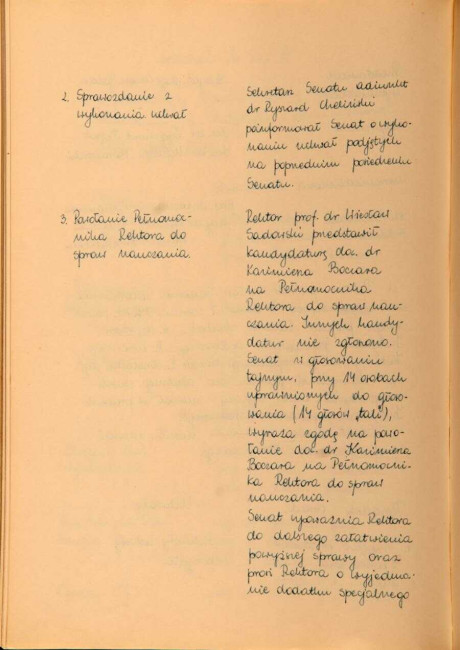 2. Sprawozdanie z
wykonania uchwał
Sekretarz Senatu adiunkt
dr Ryszard Cheliński
poinformował Senat o wyko-
naniu uchwał podjętych
na poprzednim posiedzeniu
Senatu.
3. Powołanie Pełnomoc-
nika Rektora do
spraw nauczania.
Rektor prof. dr Wiesław
Sadowski przedstawił
kandydaturę doc. dr
Kazimierza Boczara
na Pełnomocnika
Rektora do spraw nau-
czania. Innych kandy-
datur nie zgłoszono.
Senat w głosowaniu
tajnym, przy 14 osobach
uprawnionych do głoso-
wania (14 głosów "tak"),
wyraża zgodę na powo-
łanie doc. dr Kazimierza
Boczara na Pełnomocni-
ka Rektora do spraw
nauczania.
Senat upoważnia Rektora
do dalszego załatwienia
powyższej sprawy oraz
prosi Rektora o wyjedna-
nie dodatku specjalnego